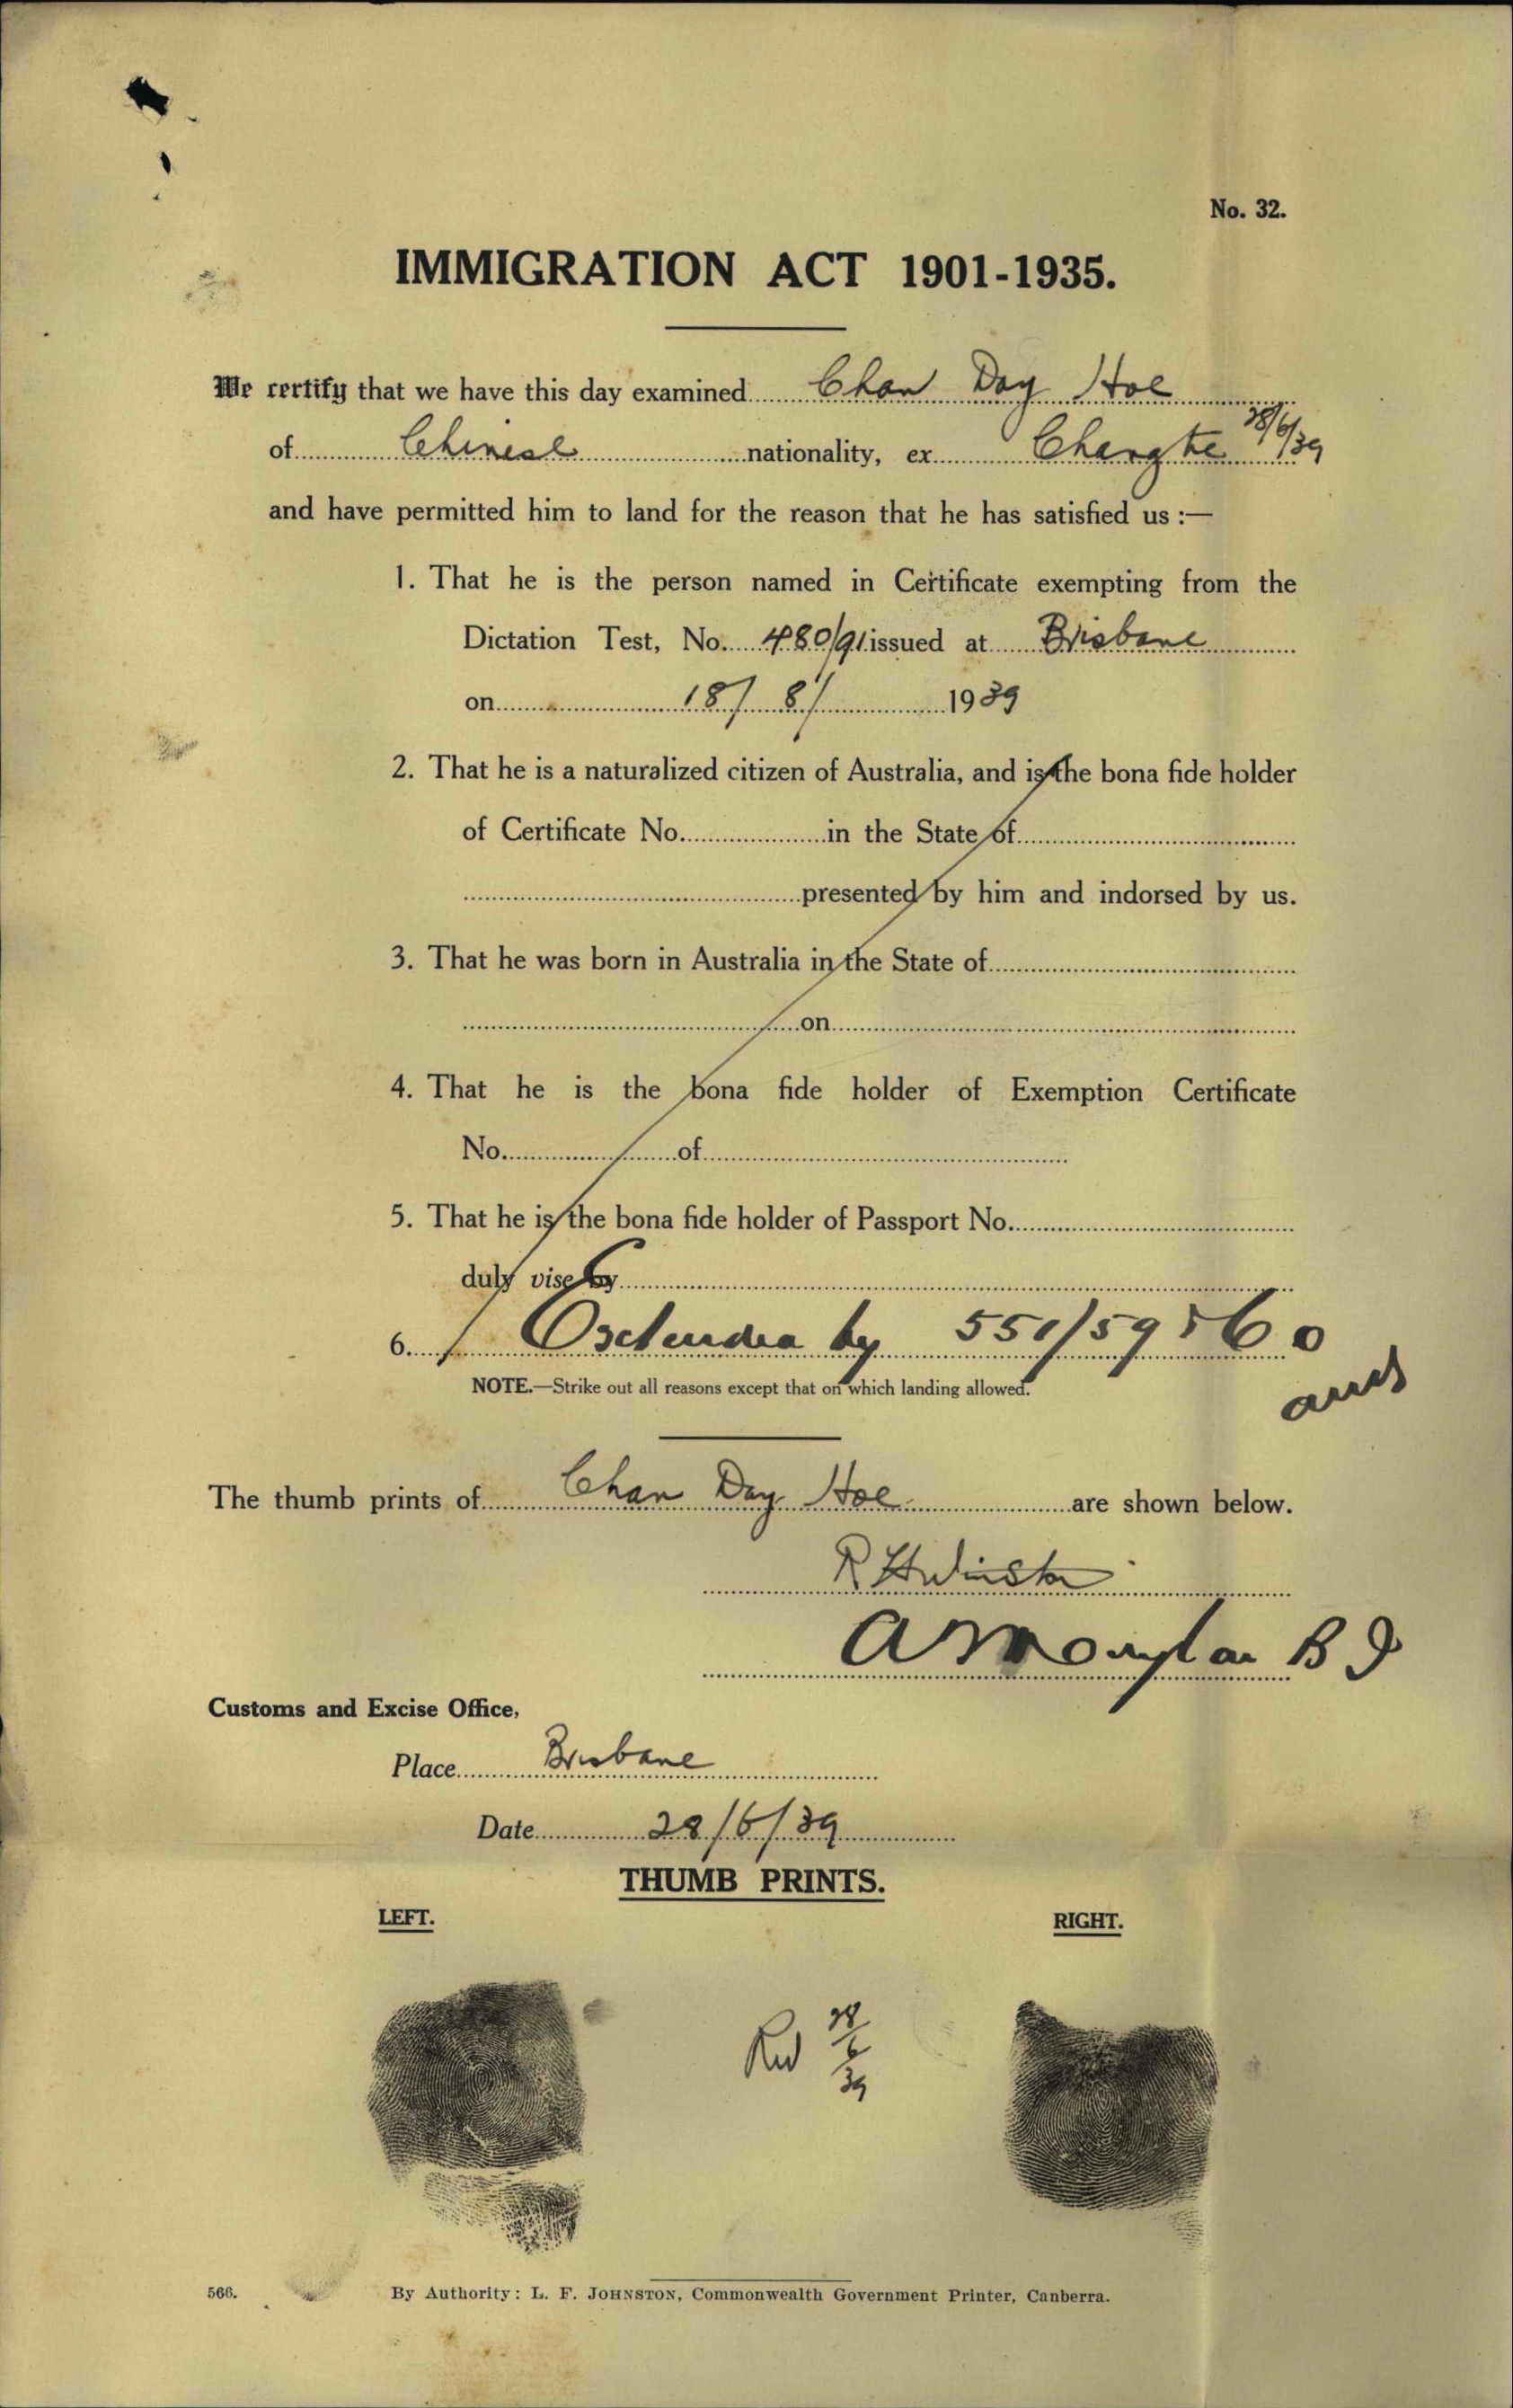 No. 32.
IMMIGRATION ACT 1901-1935.
We certify that we have this day examined Chan Day Hoe
of Chinese nationality, ex Changte 28/6/39
and have permitted him to land for the reason that he has satisfied us :—
1. That he is the person named in Certificate exempting from the
Dictation Test, No. 480/91 issued at Brisbane
on 18/ 8/ 1939
2. That he is a naturalized citizen of Australia, and is the bona fide holder
of Certificate No. in the State of
presented by him and indorsed by us.
3. That he was born in Australia in the State of
on
4. That he is the bona fide holder of Exemption Certificate
No. of
5. That he is the bona fide holder of Passport No.
duly vise by
6. by 551/59
NOTE.—Strike out all reasons except that on which landing allowed.
The thumb prints of Chan Day Hoe are shown below.
Customs and Excise Office,
Place Brisbane
Date 28/6/39
THUMB PRINTS.
LEFT. RIGHT.
28/6/39
566. By Authority: L. F. JOHNSTON, Commonwealth Government Printer, Canberra.